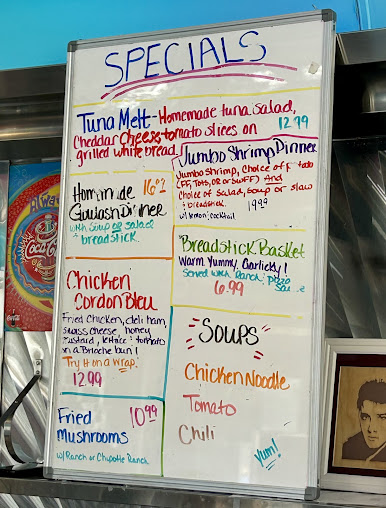 SPECIALS
Tuna Melt - Homemade tuna salad,
Cheddar Cheese, tomato slices on 12.99
grilled white bread
Jumbo Shrimp Dinner
Jumbo Shrimp, Choice of potato
(FF, Tots, OR or Buff) And
Choice of Salad, Soup or slaw
& breadstick.
w/ lemon; cocktail 19.99
Homemade 16.01
Goulash Dinner
with Soup or salad
& breadstick.
Breadstick Basket
Warm, Yummy, Garlicky!
Served with Ranch; Pizza
Sauce
6.99
Chicken
Cordon Bleu
Fried Chicken, deli ham,
Swiss cheese, honey
mustard, lettuce & tomato
on a Brioche bun!
Try it on a wrap!
12.99
SOUPS
Chicken Noodle
Tomato
Chili
Yum!
Fried 10.99
Mushrooms
w/ Ranch or Chipotle Ranch
Coca-Cola
Coca-Cola